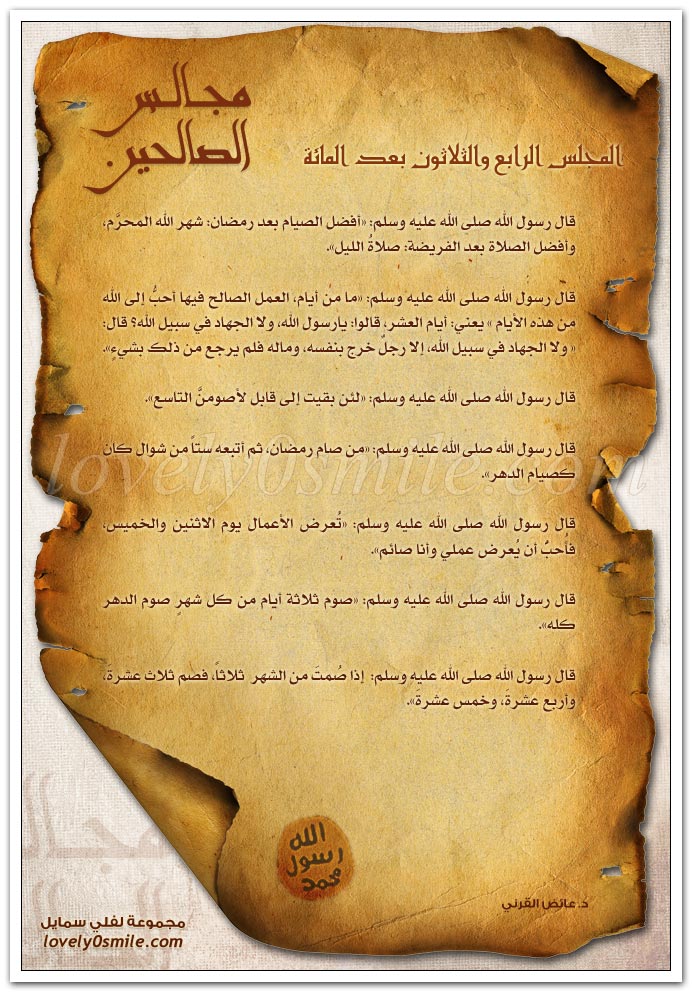 مجالس
الصالحين
المجلس الرابع والثلاثون بعد المائة
قال رسول الله صلى الله عليه وسلم: «أفضل الصيام بعد رمضان: شهر الله المحرَّم،
وأفضل الصلاة بعد الفريضة: صلاةُ الليل».
قال رسول الله صلى الله عليه وسلم: «ما من أيام، العمل الصالح فيها أحبُّ إلى الله
من هذه الأيام » يعني: أيام العشر، قالوا: يارسول الله، ولا الجهاد في سبيل الله؟ قال:
« ولا الجهاد في سبيل الله، إلا رجلٌ خرج بنفسه، وماله فلم يرجع من ذلك بشيءٍ».
قال رسول الله صلى الله عليه وسلم: «لئن بقيت إلى قابل لأصومنَّ التاسع».
قال رسول الله صلى الله عليه وسلم: «من صام رمضان، ثم أتبعه ستاً من شوال كان
كصيام الدهر».
lovely0smile.com
قال رسول الله صلى الله عليه وسلم: «تُعرض الأعمال يوم الاثنين والخميس،
فأُحبُّ أن يُعرض عملي وأنا صائم».
قال رسول الله صلى الله عليه وسلم: «صوم ثلاثة أيام من كل شهرٍ صوم الدهر
كله».
قال رسول الله صلى الله عليه وسلم: إذا صُمتَ من الشهر ثلاثاً، فصم ثلاث عشرةَ،
وأربع عشرةَ، وخمس عشرةَ».
الله
رسول
محمد
د.عائض القرني
مجموعة لفلي سمايل
lovely0smile.com